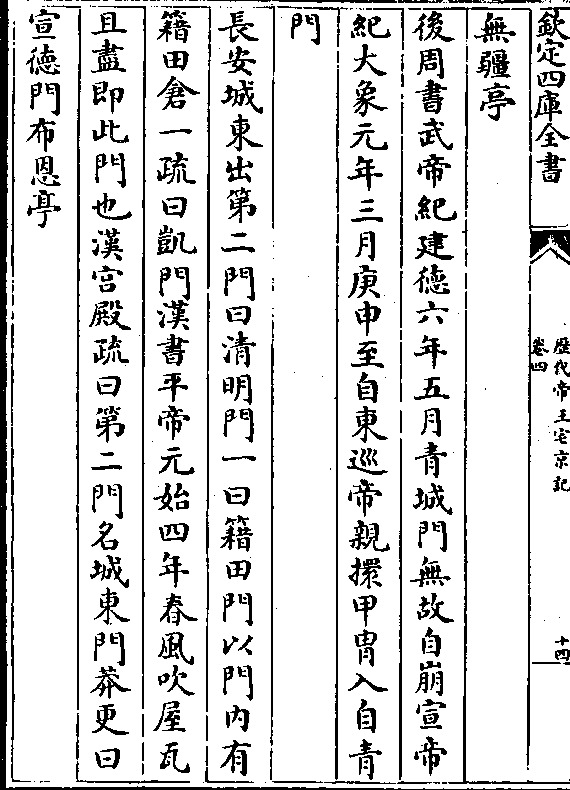 欽定四庫全書
歷代帝王宅京記
卷四
十四
無疆亭
後周書武帝紀建德六年五月青城門無故自崩宣帝
紀大象元年三月庚申至自東巡帝親擐甲胄入自青
門
長安城東出第二門曰清明門一曰籍田門以門内有
籍田倉一疏曰凱門漢書平帝元始四年春風吹屋瓦
且盡即此門也漢宫殿疏曰第二門名城東門莽更曰
宣徳門布恩亭